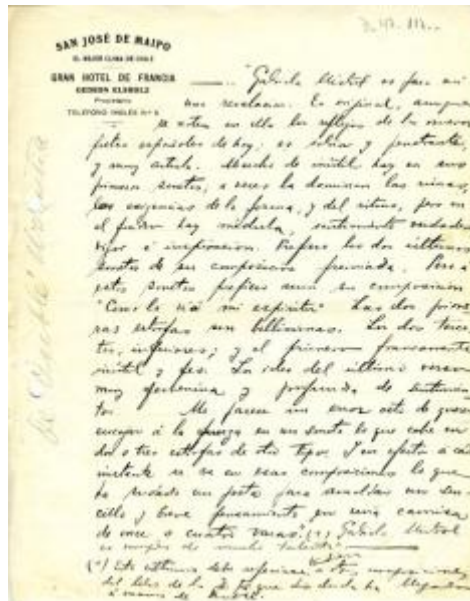 SAN JOSÉ DE MAIPO
EL MEJOR CLIMA DE CHILE
GRAN HOTEL DE FRANCIA
Propietario
TELEFONO INGLES Nº 5
"Gabriela Mistral es para mí
una revelacion. Es orijinal, aunque
se noten en ella los reflejos de los nuevos
poetas españoles de hoy; es sobria y penetrante,
y muy artista. Mucho de inútil hay en sus
primeros sonetos, a veces la dominan las rimas,
las exigencias de la forma, y del ritmo, pero en
el fondo hay médula, sentimiento verdadero
vigor e inspiracion. Prefiero los dos últimos
sonetos de su composicion premiada. Pero a
estos sonetos prefiero aun su composicion
mi espíritu" Las dos prime
ras estrofas son bellísimas. Los dos terce
tos, inferiores; y el primero francamente
inútil y feo. La idea del último verso
muy femenina y profunda de sentimien
to. Me parece un error esto de querer
encajar á la fuerza en un soneto lo que cabe en
dos o tres estrofas de otro tipo. I en efecto a cada
instante se ve en esas composiciones lo que
ha sudado un poeta para amoldar un sen
cillo y breve pensamiento en una camisa
de once o catorce varas." (*) Gabriela Mistral
es mujer de mucho talento"
(*) Esto último debe referirse a otras composiciones
del libro de la que sin duda ha llegado
á manos de